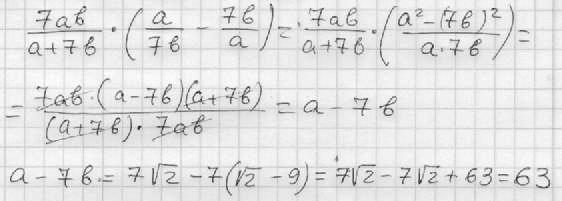 7ab/(a+7b) · (a/7b − 7b/a) = 7ab/(a+7b) · ((a²−(7b)²)/(a·7b)) =
= (7ab·(a−7b)(a+7b))/((a+7b)·7ab) = a − 7b
a − 7b = 7√2 − 7(√2 − 9) = 7√2 − 7√2 + 63 = 63